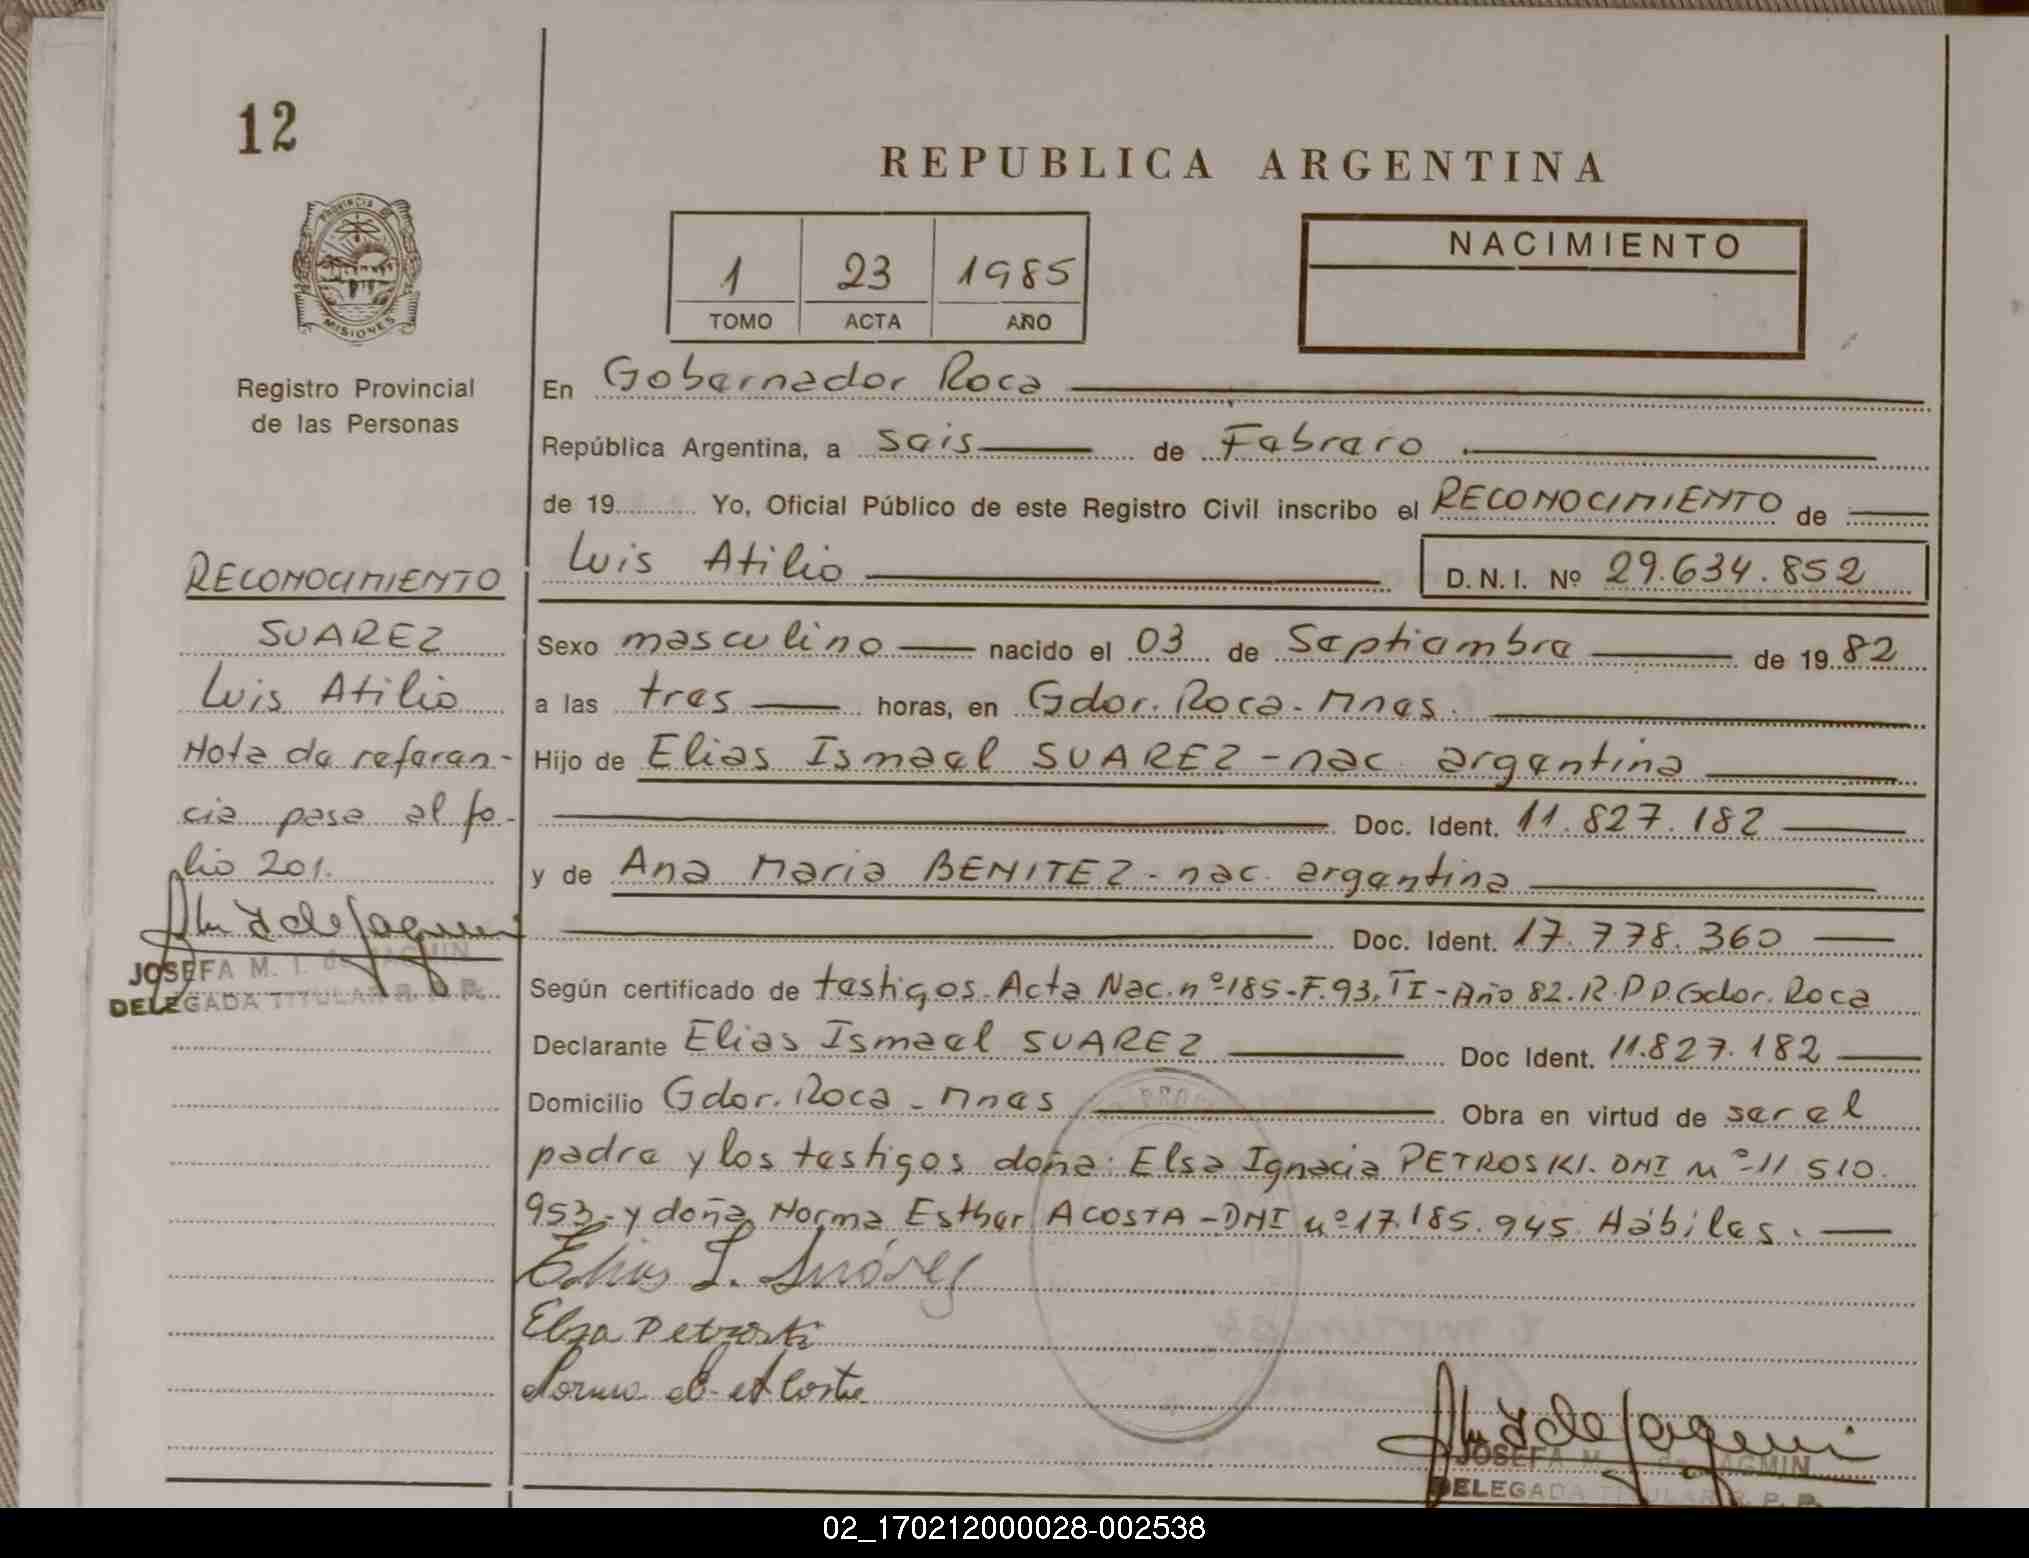 12
REPUBLICA ARGENTINA
PROVINCIA DE
MISIONES
Registro Provincial
de las Personas
1 23 1985
TOMO ACTA AÑO
NACIMIENTO
En Gobernador Roca
República Argentina, a seis de Febrero
de 19 Yo, Oficial Público de este Registro Civil inscribo el RECONOCIMIENTO de
Luis Atilio D.N.I. Nº 29.634.852
RECONOCIMIENTO
SUAREZ
Luis Atilio
Nota de referen-
cia pasa al fo-
lio 201.
JOSEFA M. I. de JAGMIN
DELEGADA TITULAR R. P. P.
Sexo masculino nacido el 03 de Septiembre de 1982
a las tres horas, en Gdor. Roca - Mnes.
Hijo de Elias Ismael SUAREZ - nac. argentina
Doc. Ident. 11.827.182
y de Ana Maria BENITEZ - nac. argentina
Doc. Ident. 17.778.360
Según certificado de testigos. Acta Nac. nº 185-F.93. TI-Año 82. R.P.P. Gdor. Roca
Declarante Elias Ismael SUAREZ Doc Ident. 11.827.182
Domicilio Gdor. Roca - Mnes Obra en virtud de ser el
padre y los testigos doña: Elsa Ignacia PETROSKI. DNI Nº 11 510.
953- y doña Norma Esther ACOSTA - DNI nº 17.185.945 Hábiles.
Elias I. Suárez
Elsa Petroski
Norma E. Acosta
JOSEFA M. I. de JAGMIN
DELEGADA TITULAR R. P. P.
02_170212000028-002538